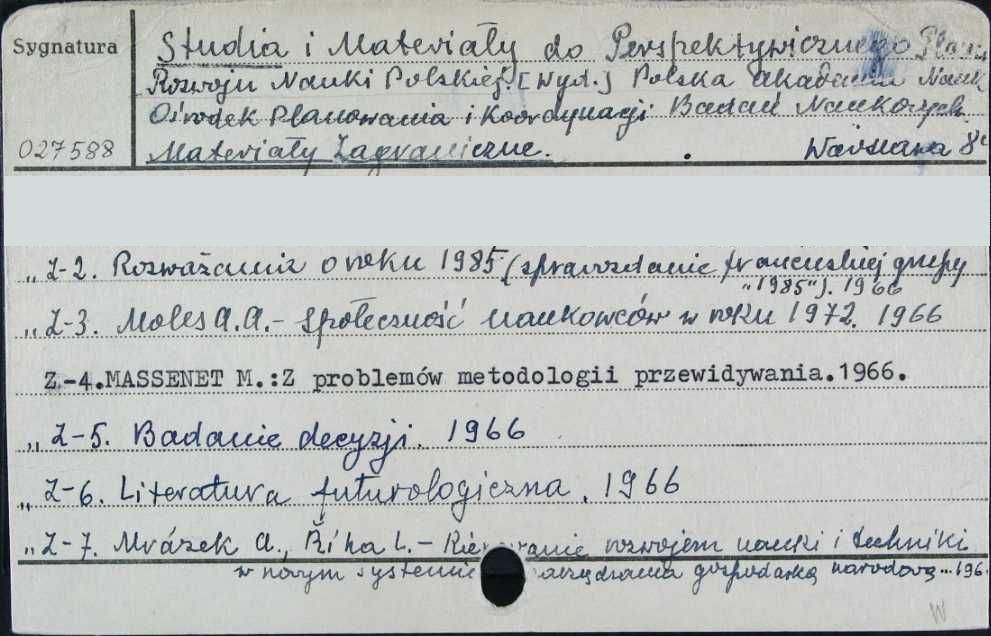 Sygnatura
Studia i Materiały do Perspektywicznego Planu
Rozwoju Nauki Polskiej. [Wyd.] Polska Akademia Nauk
Ośrodek Planowania i Koordynacji Badań Naukowych.
027588 Materiały Zagraniczne. Warszawa 8°
„ Z-2. Rozważania o roku 1985 (sprawozdanie francuskiej grupy
„1985"). 1966
„ Z-3. Moles A.A. - Społeczność naukowców w roku 1972. 1966
Z.-4.MASSENET M.:Z problemów metodologii przewidywania.1966.
„ Z-5. Badanie decyzji. 1966
„ Z-6. Literatura futurologiczna. 1966
„ Z-7. Mrázek A., Říha L. - rozwojem nauki i techniki
w nowym systemie gospodarką narodową...196
W